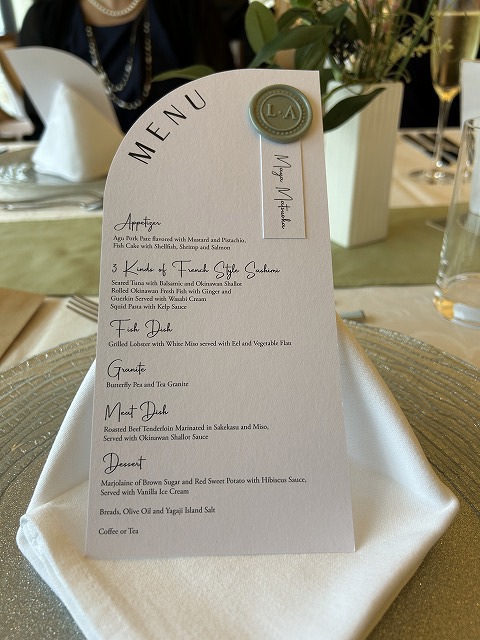 MENU
L·A
Maya Matsuoka
Appetizer
Agu Pork Pate flavored with Mustard and Pistachio,
Fish Cake with Shellfish, Shrimp and Salmon
3 Kinds of French Style Sashimi
Seared Tuna with Balsamic and Okinawan Shallot
Rolled Okinawan Fresh Fish with Ginger and
Guerkin Served with Wasabi Cream
Squid Pasta with Kelp Sauce
Fish Dish
Grilled Lobster with White Miso served with Eel and Vegetable Flan
Granite
Butterfly Pea and Tea Granite
Meat Dish
Roasted Beef Tenderloin Marinated in Sakekasu and Miso,
Served with Okinawan Shallot Sauce
Dessert
Marjolaine of Brown Sugar and Red Sweet Potato with Hibiscus Sauce,
Served with Vanilla Ice Cream
Breads, Olive Oil and Yagaji Island Salt
Coffee or Tea